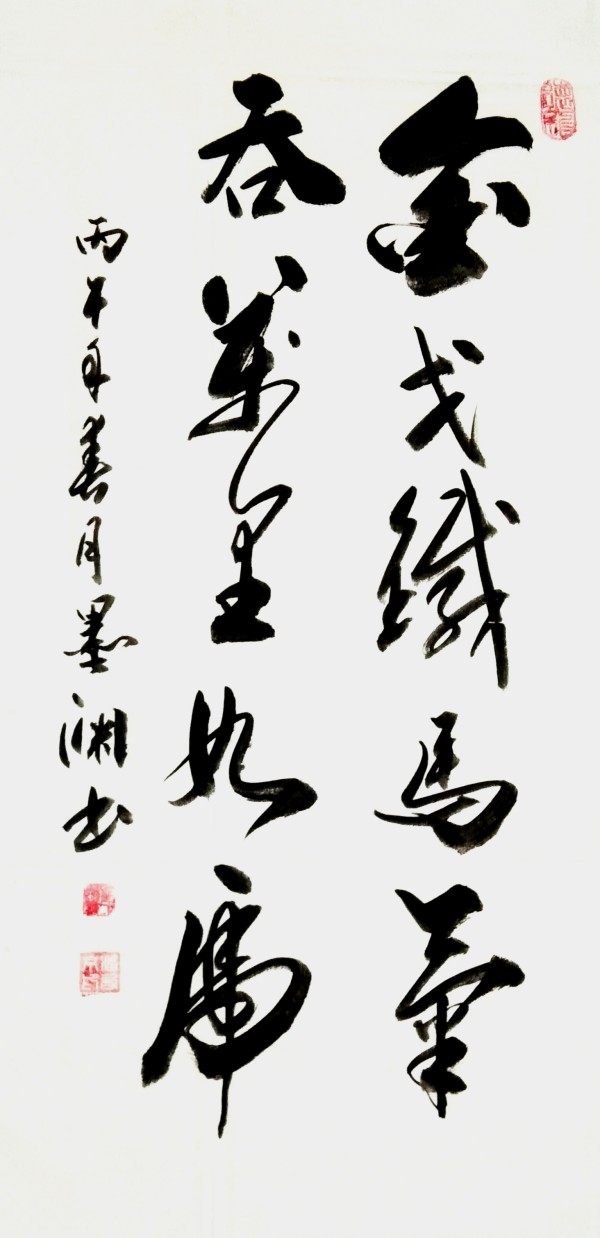 金戈鐵馬氣
吞萬里如虎
丙午年春月墨渊书